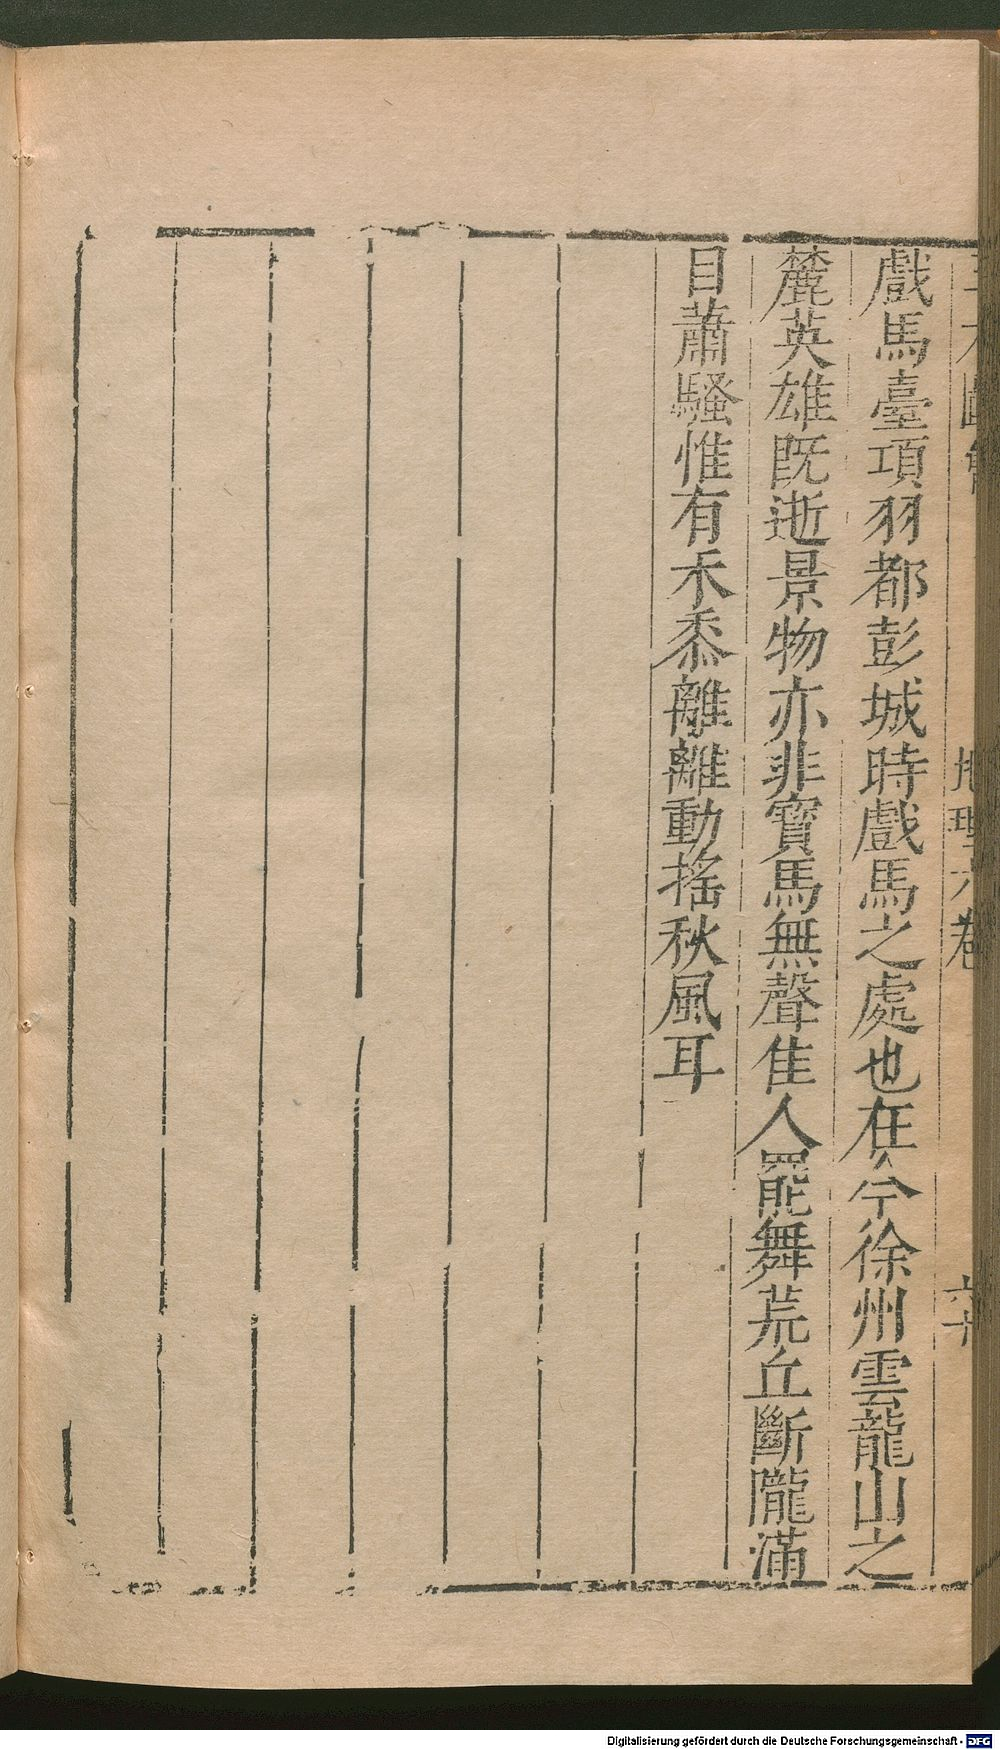 地理六卷
戲馬臺項羽都彭城時戲馬之處也在今徐州雲龍山之
麓英雄既逝景物亦非寶馬無聲佳人罷舞荒丘斷隴滿
目蕭騷惟有禾黍離離動搖秋風耳
Digitalisierung gefördert durch die Deutsche Forschungsgemeinschaft - DFG